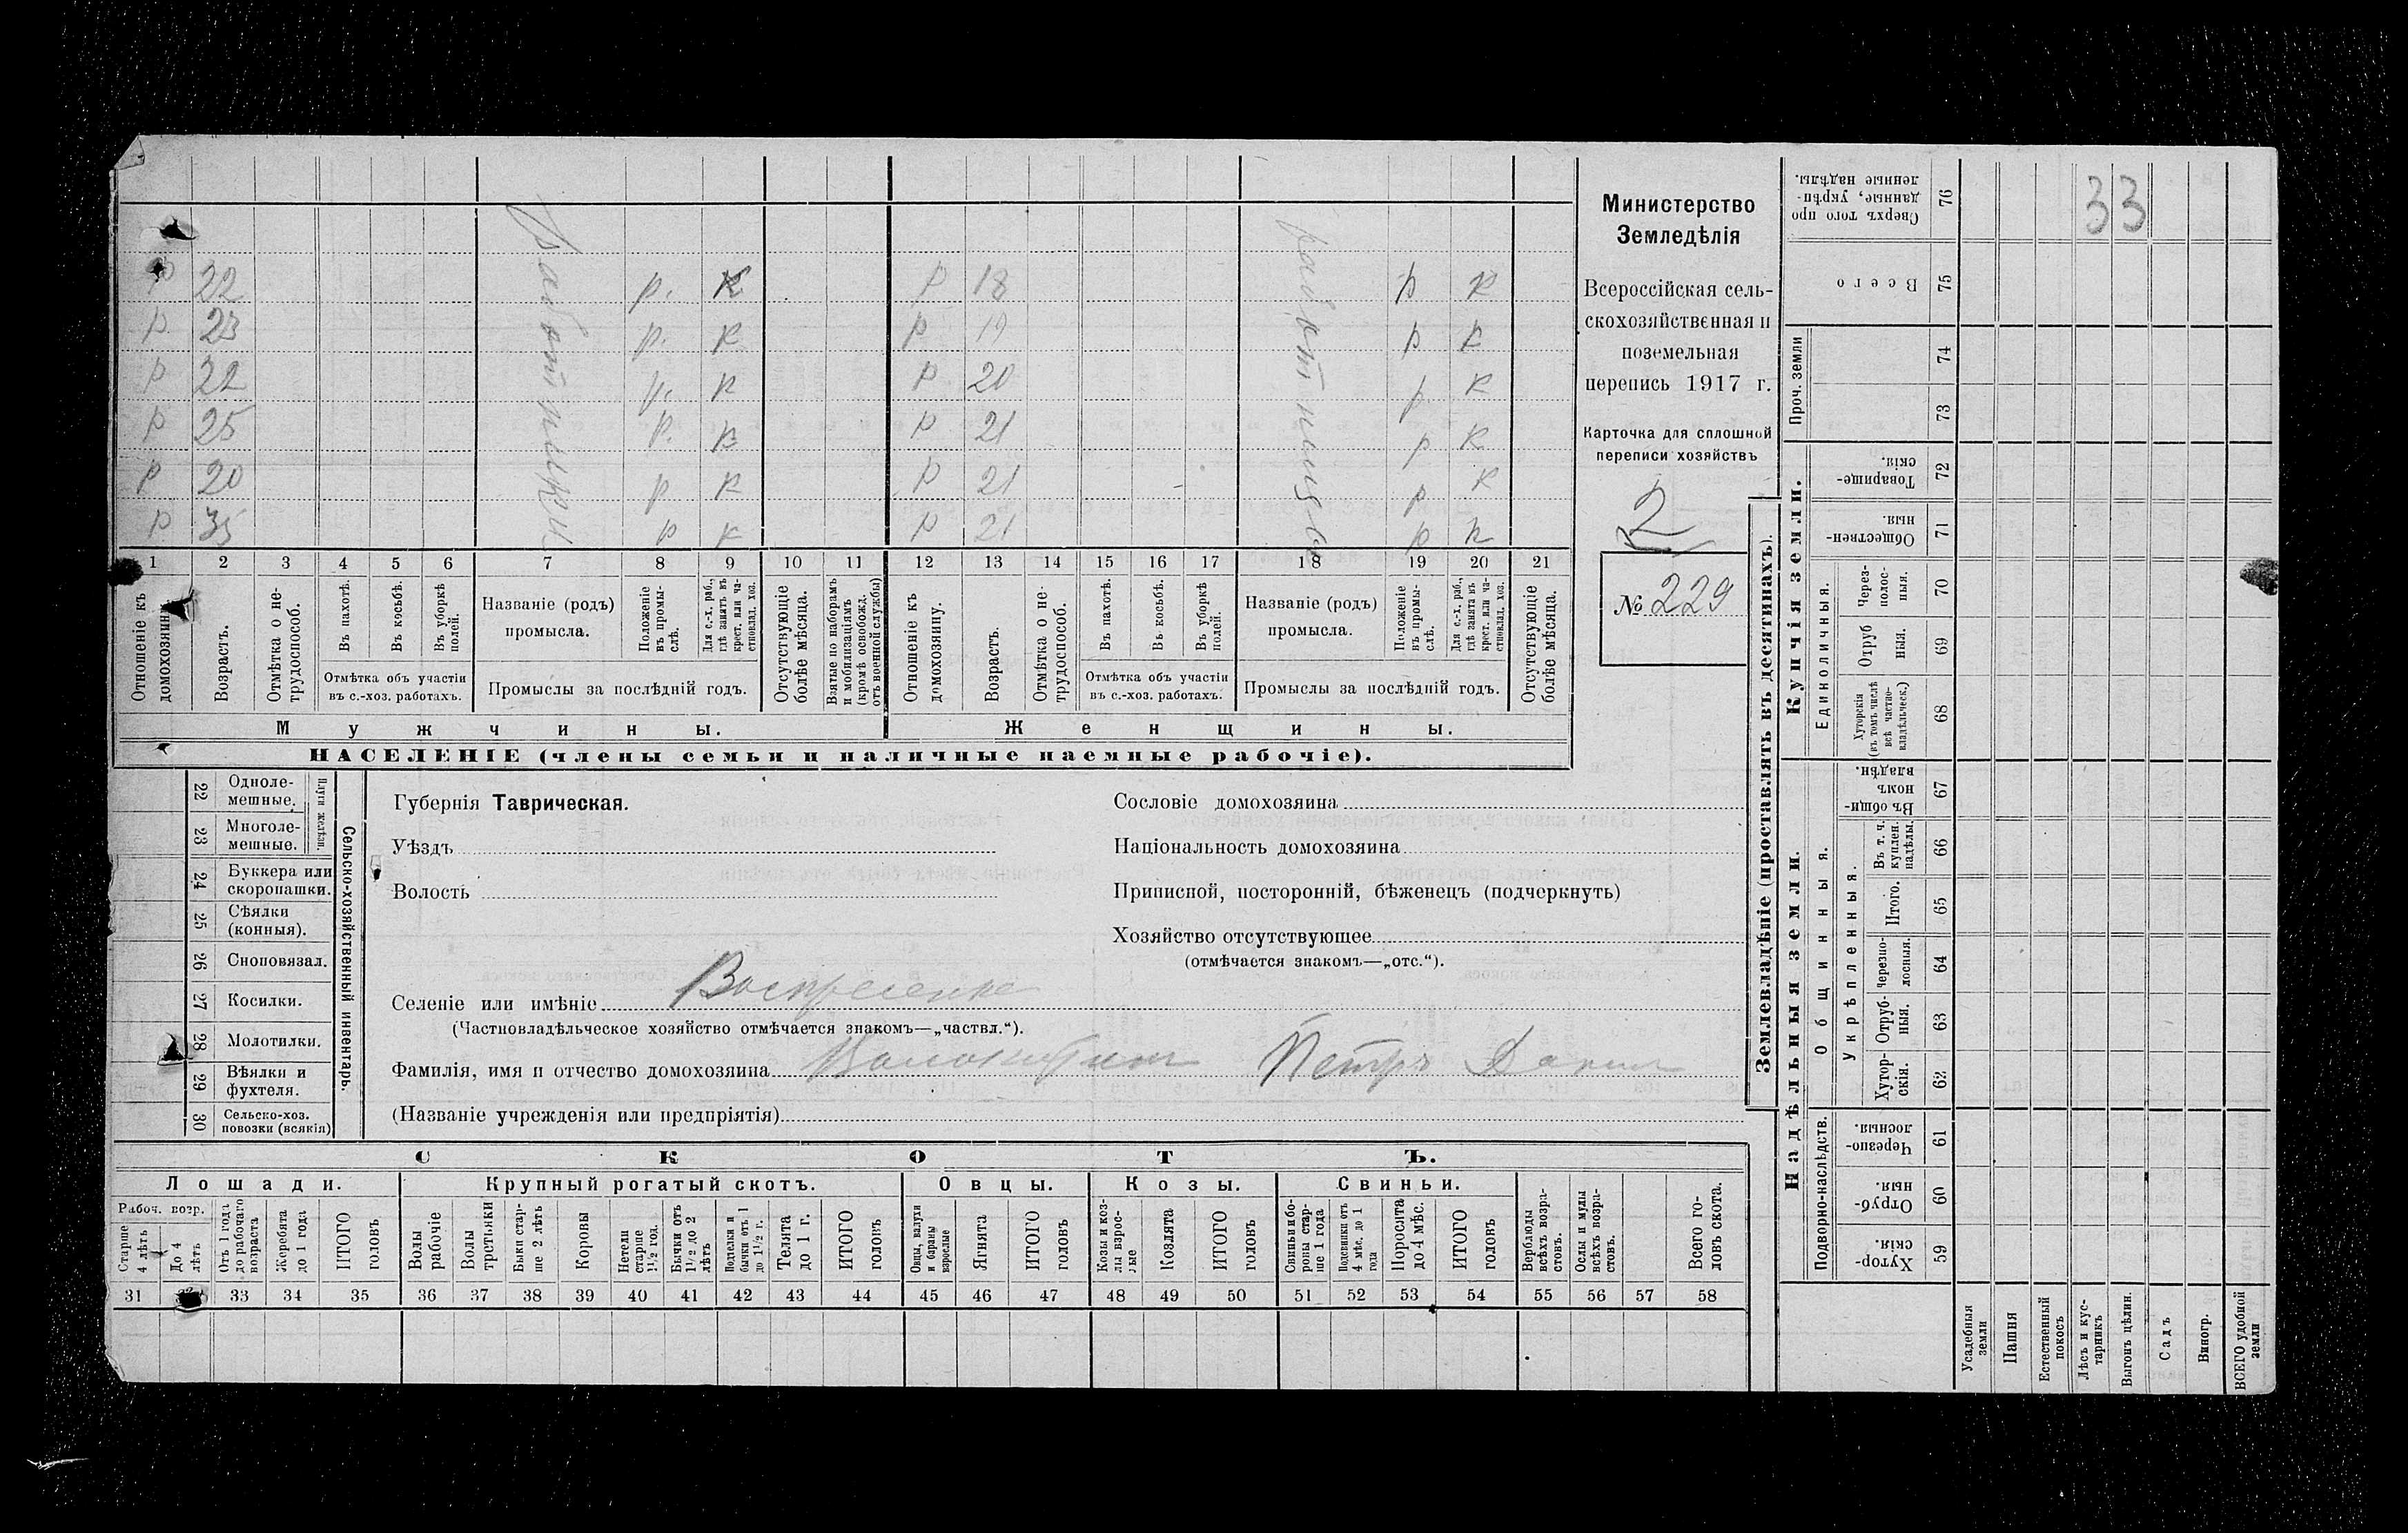 р 22 р. к Р 18 р к
р. 23 р. к р 19 р к
р 22 р. к р 20 р. к
р 25 р. к р 21 р к
р 20 р к р 21 р к
р 35 р к р 21 р к
работники
работницы
1 2 3 4 5 6 7 8 9 10 11 12 13 14 15 16 17 18 19 20 21
Отношеніе къ домохозяину
Возрастъ.
Отмѣтка о не-
трудоспособ.
Въ пахотѣ.
Въ косьбѣ.
Въ уборкѣ
полей.
Отмѣтка объ участіи
въ с.-хоз. работахъ.
Названіе (родъ)
промысла.
Положеніе
въ промы-
слѣ.
Для с.-х. раб.,
гдѣ занятъ въ
крест. или ча-
стновлад. хоз.
Промыслы за послѣдній годъ.
Отсутствующіе
болѣе мѣсяца.
Взятые по наборамъ
и мобилизаціямъ
(кромѣ освобожд.
отъ военной службы)
Отношеніе къ
домохозяину.
Возрастъ.
Отмѣтка о не-
трудоспособ.
Въ пахотѣ.
Въ косьбѣ.
Въ уборкѣ
полей.
Отмѣтка объ участіи
въ с.-хоз. работахъ.
Названіе (родъ)
промысла.
Положеніе
въ промы-
слѣ.
Для с.-х. раб.,
гдѣ занята въ
крест. или ча-
стновлад. хоз.
Промыслы за послѣдній годъ.
Отсутствующіе
болѣе мѣсяца.
Мужчины.
Женщины.
НАСЕЛЕНІЕ (члены семьи и наличные наемные рабочіе).
Министерство
Земледѣлія
Всероссійская сель-
скохозяйственная и
поземельная
перепись 1917 г.
Карточка для сплошной
переписи хозяйствъ
2
№ 229
22 Одноле-
мешные.
23 Многоле-
мешные.
Плуги желѣзн.
24 Буккера или
скоропашки.
25 Сѣялки
(конныя).
26 Сноповязал.
27 Косилки.
28 Молотилки.
29 Вѣялки и
фухтеля.
30 Сельско-хоз.
повозки (всякія)
Сельско-хозяйственный инвентарь.
Губернія Таврическая.
Уѣздъ
Волость
Селеніе или имѣніе
(Частновладѣльческое хозяйство отмѣчается знакомъ—„частвл.“).
Фамилія, имя и отчество домохозяина Петръ
(Названіе учрежденія или предпріятія)
Сословіе домохозяина
Національность домохозяина
Приписной, посторонній, бѣженецъ (подчеркнуть)
Хозяйство отсутствующее
(отмѣчается знакомъ—„отс.“).
СКОТЪ.
Лошади.
Крупный рогатый скотъ.
Овцы.
Козы.
Свиньи.
Рабоч. возр.
Старше
4 лѣтъ
До 4
лѣтъ
Отъ 1 года
до рабочаго
возраста
Жеребята
до 1 года
ИТОГО
головъ
Волы
рабочіе
Волы
третьяки
Быки стар-
ше 2 лѣтъ
Коровы
Нетели
старше
1½ год.
Бычки отъ
1½ до 2
лѣтъ
Подтелки и
бычки отъ 1
до 1½ г.
Телята
до 1 г.
ИТОГО
головъ
Овцы, валухи
и бараны
взрослые
Ягнята
ИТОГО
головъ
Козы и коз-
лы взрос-
лые
Козлята
ИТОГО
головъ
Свиньи и бо-
ровы стар-
ше 1 года
Подсвинки отъ
4 мѣс. до 1
года
Поросята
до 4 мѣс.
ИТОГО
головъ
Верблюды
всѣхъ возра-
стовъ.
Ослы и мулы
всѣхъ возра-
стовъ.
Всего го-
ловъ скота.
31 33 34 35 36 37 38 39 40 41 42 43 44 45 46 47 48 49 50 51 52 53 54 55 56 57 58
Землевладѣніе (проставлять въ десятинахъ).
Купчія земли.
Надѣльныя земли.
Сверхъ того про
данные, укрѣп-
ленные надѣлы. 76
33
Всего 75
Проч. земли
74
73
Товарище-
скія. 72
Обществен-
ныя. 71
Единоличныя.
Через-
полос-
ныя. 70
Отруб
ныя. 69
Хуторскія
(въ томъ числѣ
всѣ частно-
владѣльческ.) 68
Въ общи-
номъ
владѣн. 67
Общинныя.
Укрѣпленныя.
Въ т. ч.
куплен.
надѣлы. 66
Итого. 65
Черезпо-
лосныя. 64
Отруб-
ныя. 63
Хутор-
скія. 62
Подворно-наслѣдств.
Черезпо-
лосныя. 61
Отруб-
ныя. 60
Хутор-
скія. 59
Усадебныя
земли
Пашня
Естественный
покосъ
Лѣсъ и кус-
тарникъ
Выгонъ цѣлин.
Садъ
Виногр.
ВСЕГО удобной
земли